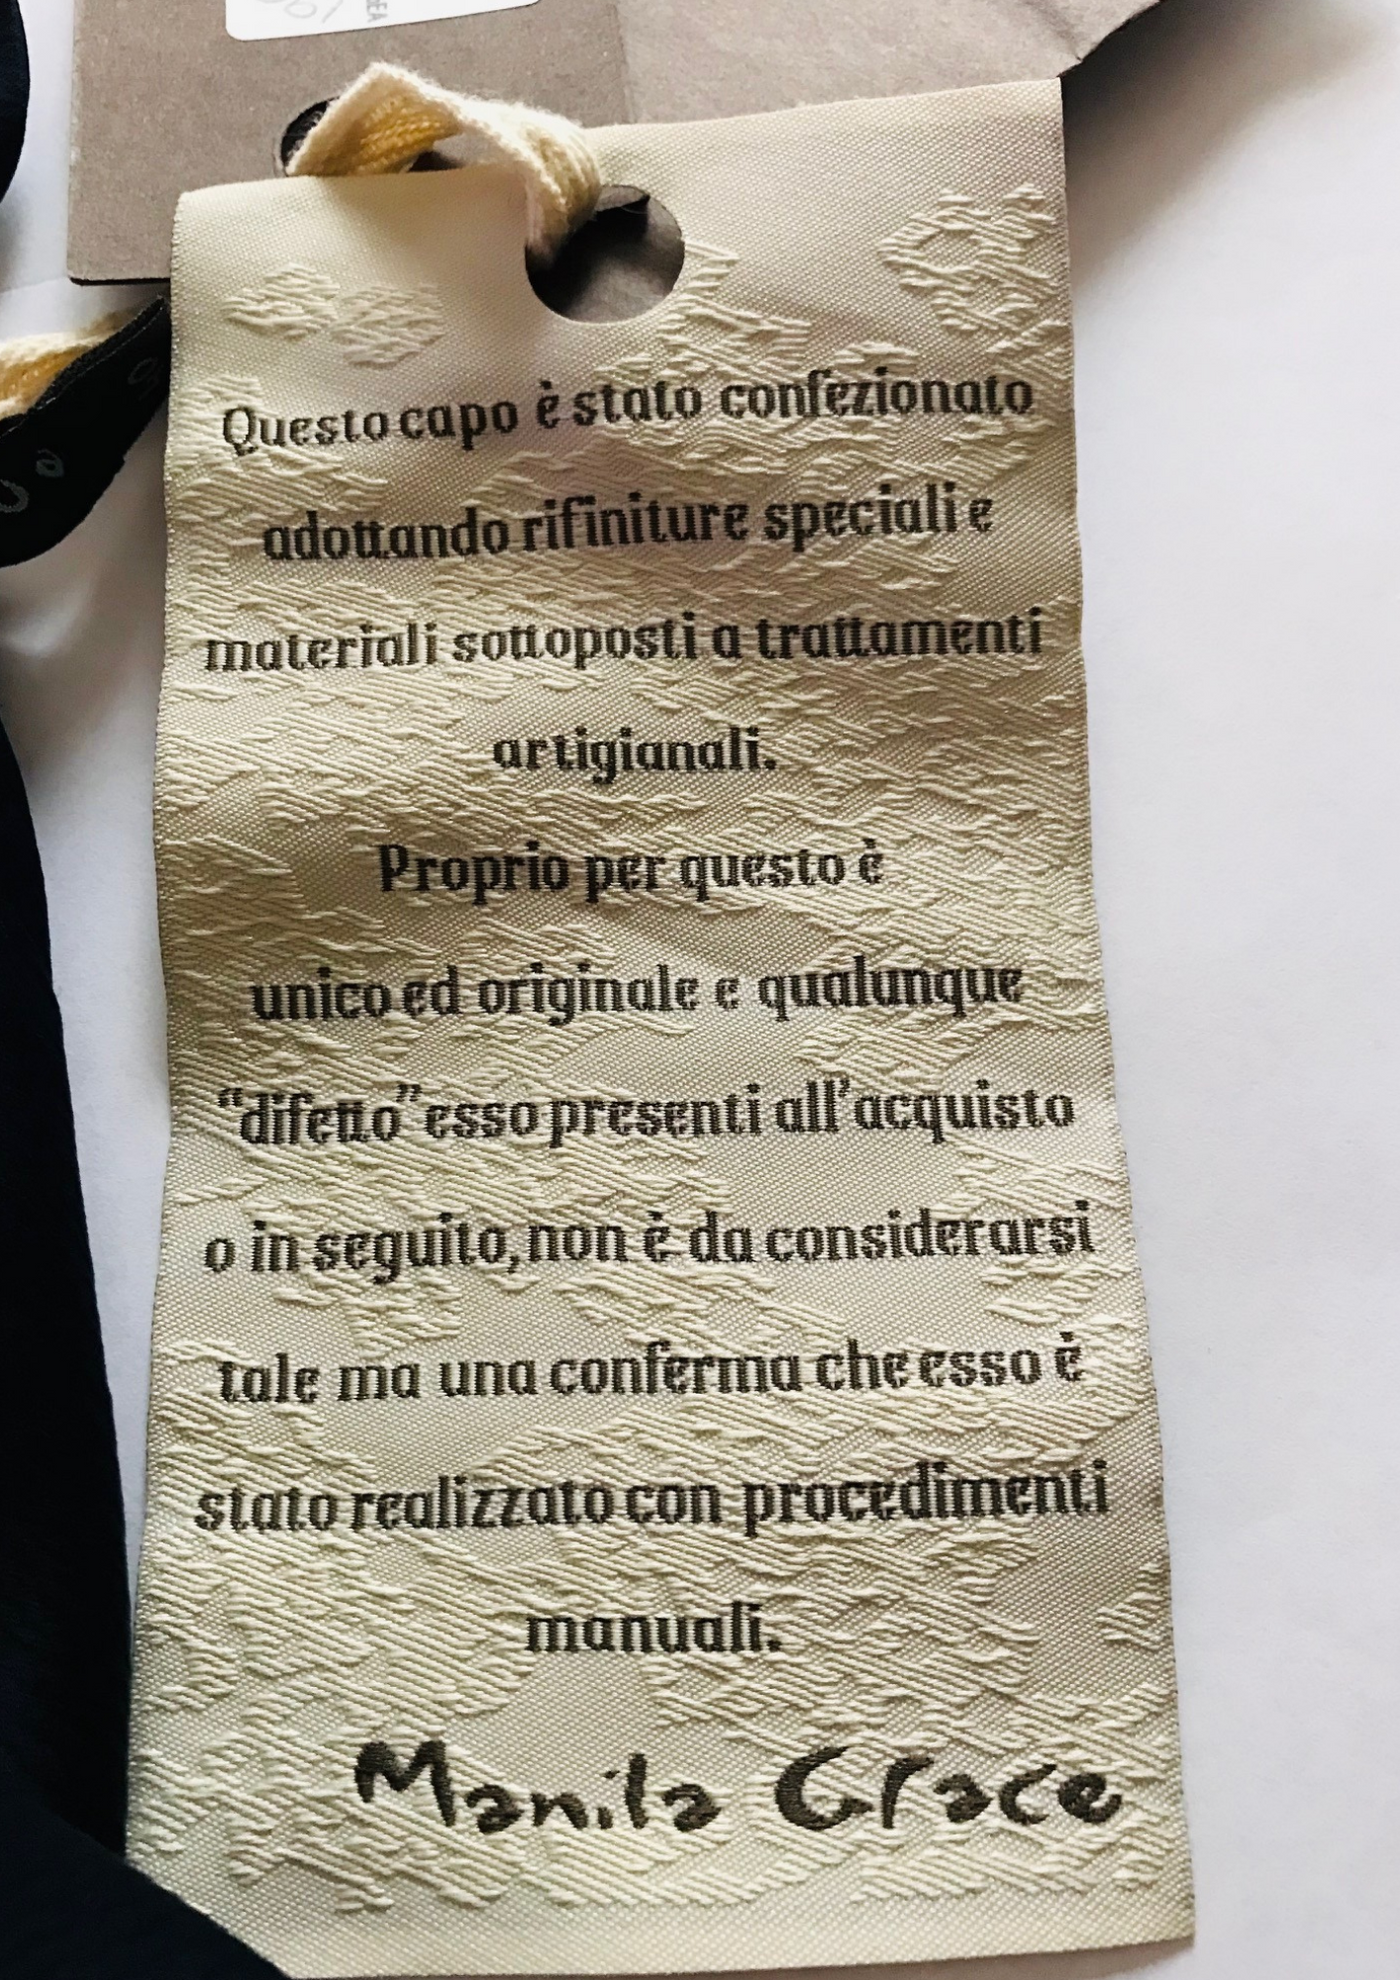 Questo capo è stato confezionato
adottando rifiniture speciali e
materiali sottoposti a trattamenti
artigianali.
Proprio per questo è
unico ed originale e qualunque
“difetto” esso presenti all’acquisto
o in seguito, non è da considerarsi
tale ma una conferma che esso è
stato realizzato con procedimenti
manuali.
Manila Grace